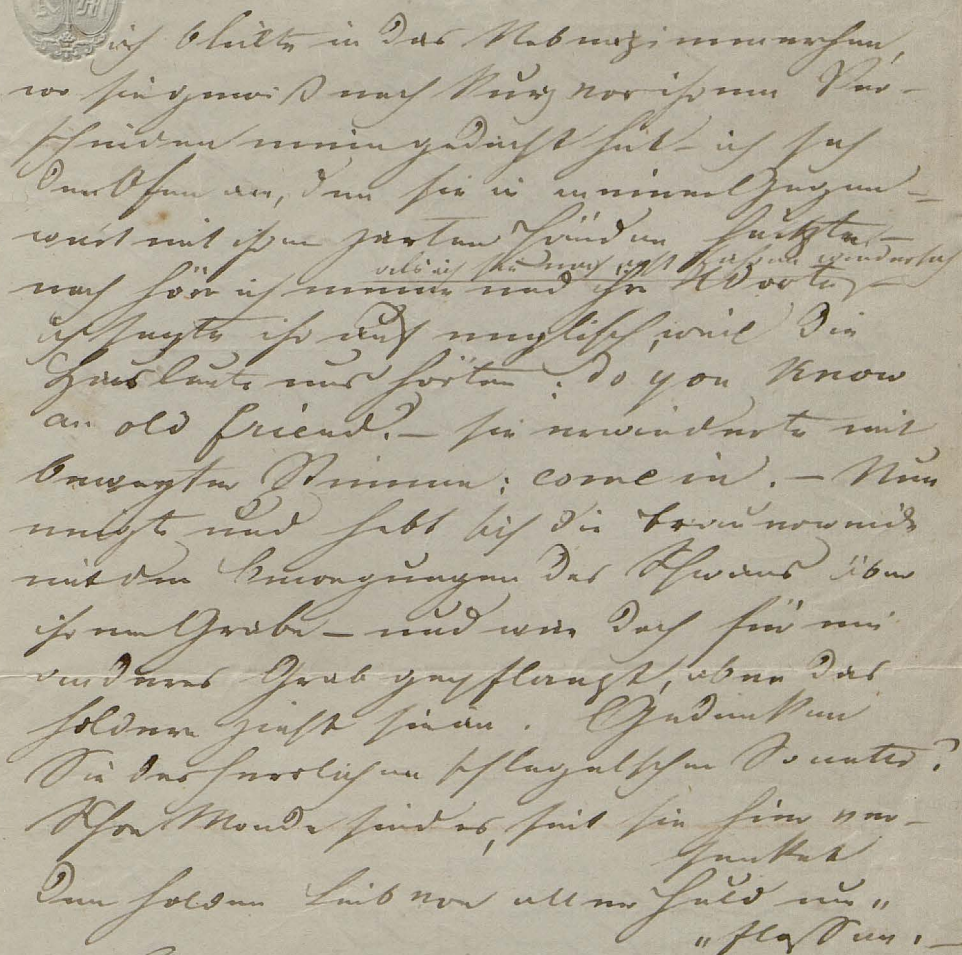 ich blickte in das Nebenzimmerchen,
wo sie gewiß noch kurz vor ihrem Ver-
scheiden mein gedacht hat – ich sah
den Ofen an, den sie in meiner Gegen-
wart mit ihren zarten Händen heizte, –
als ich sie nach wiedersah
noch höre ich meine und ihre Worte, –
ich sagte ihr auf englisch, weil die
Hausleute uns hörten: do you Know
an old friend? – sie erwiederte mit
bewegter Stimme: come in. – Nun
neigt und hebt sich die Trauerweide
mit den Bewegungen des Schwans über
ihrem Grabe – und war doch für ein
anderes Grab gepflanzt, aber das
holdere zieht sie an. Gedenken
Sie des herrlichen schlegelschen Sonetts?
Schon Monde sind es, seit sie hier ver-
senket
Den holden Leib von aller Huld um„
„flossen. –